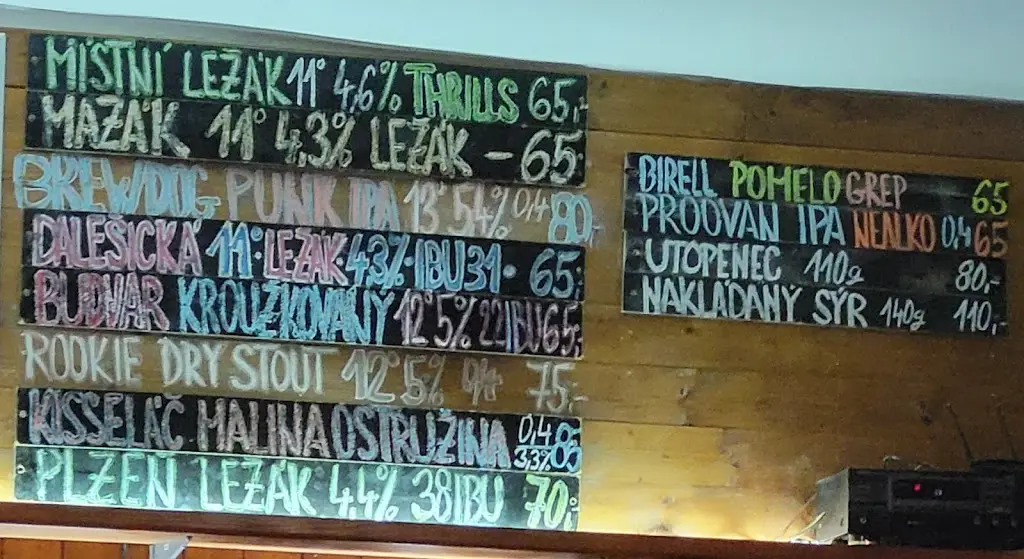 MÍSTNÍ LEŽÁK 11° 4,6% THRILLS 65,-
MAZÁK 11° 4,3% LEŽÁK - 65
BREWDOG PUNK IPA 13° 5,4% 0,4 80,-
DALEŠICKÁ 11° LEŽÁK 4,3% IBU31 · 65,-
BUDVAR KROUŽKOVANÝ 12° 5% 22IBU 65,-
ROOKIE DRY STOUT 12° 5% 0,4 75,-
KISSELÁČ MALINA OSTRUŽINA 0,4 3,3% 85
PLZEŇ LEŽÁK 4,4% 38IBU 70,-
BIRELL POMELO GREP 65
PROOVAN IPA NEALKO 0,4 65
UTOPENEC 110g 80,-
NAKLÁDANÝ SÝR 140g 110,-